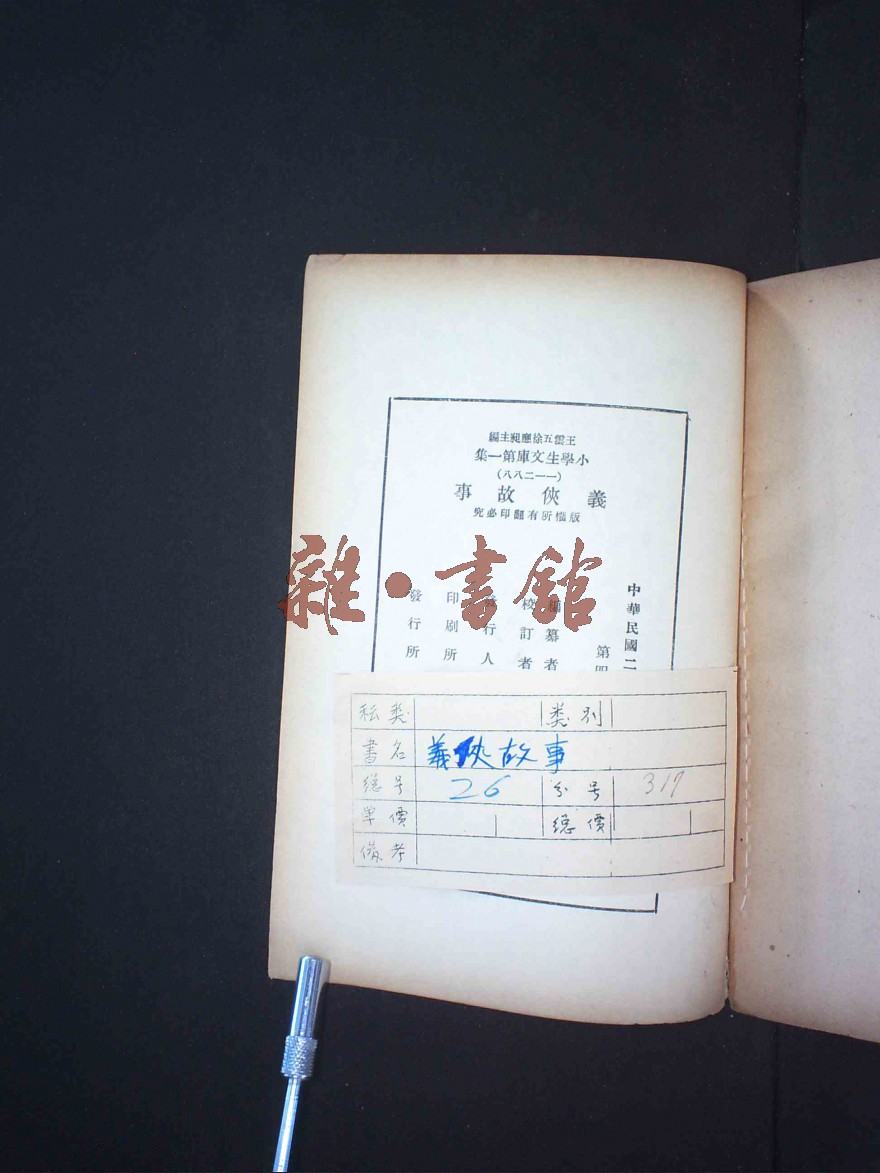 王雲五徐應昶主編
小學生文庫第一集
(一一二八八)
義俠故事
版權所有翻印必究
雜·書館
中華民國二
第
編纂者
校訂者
發行人
印刷所
發行所
类 类别
書名 義俠故事
總号 26 分号 317
單價 總價
備考